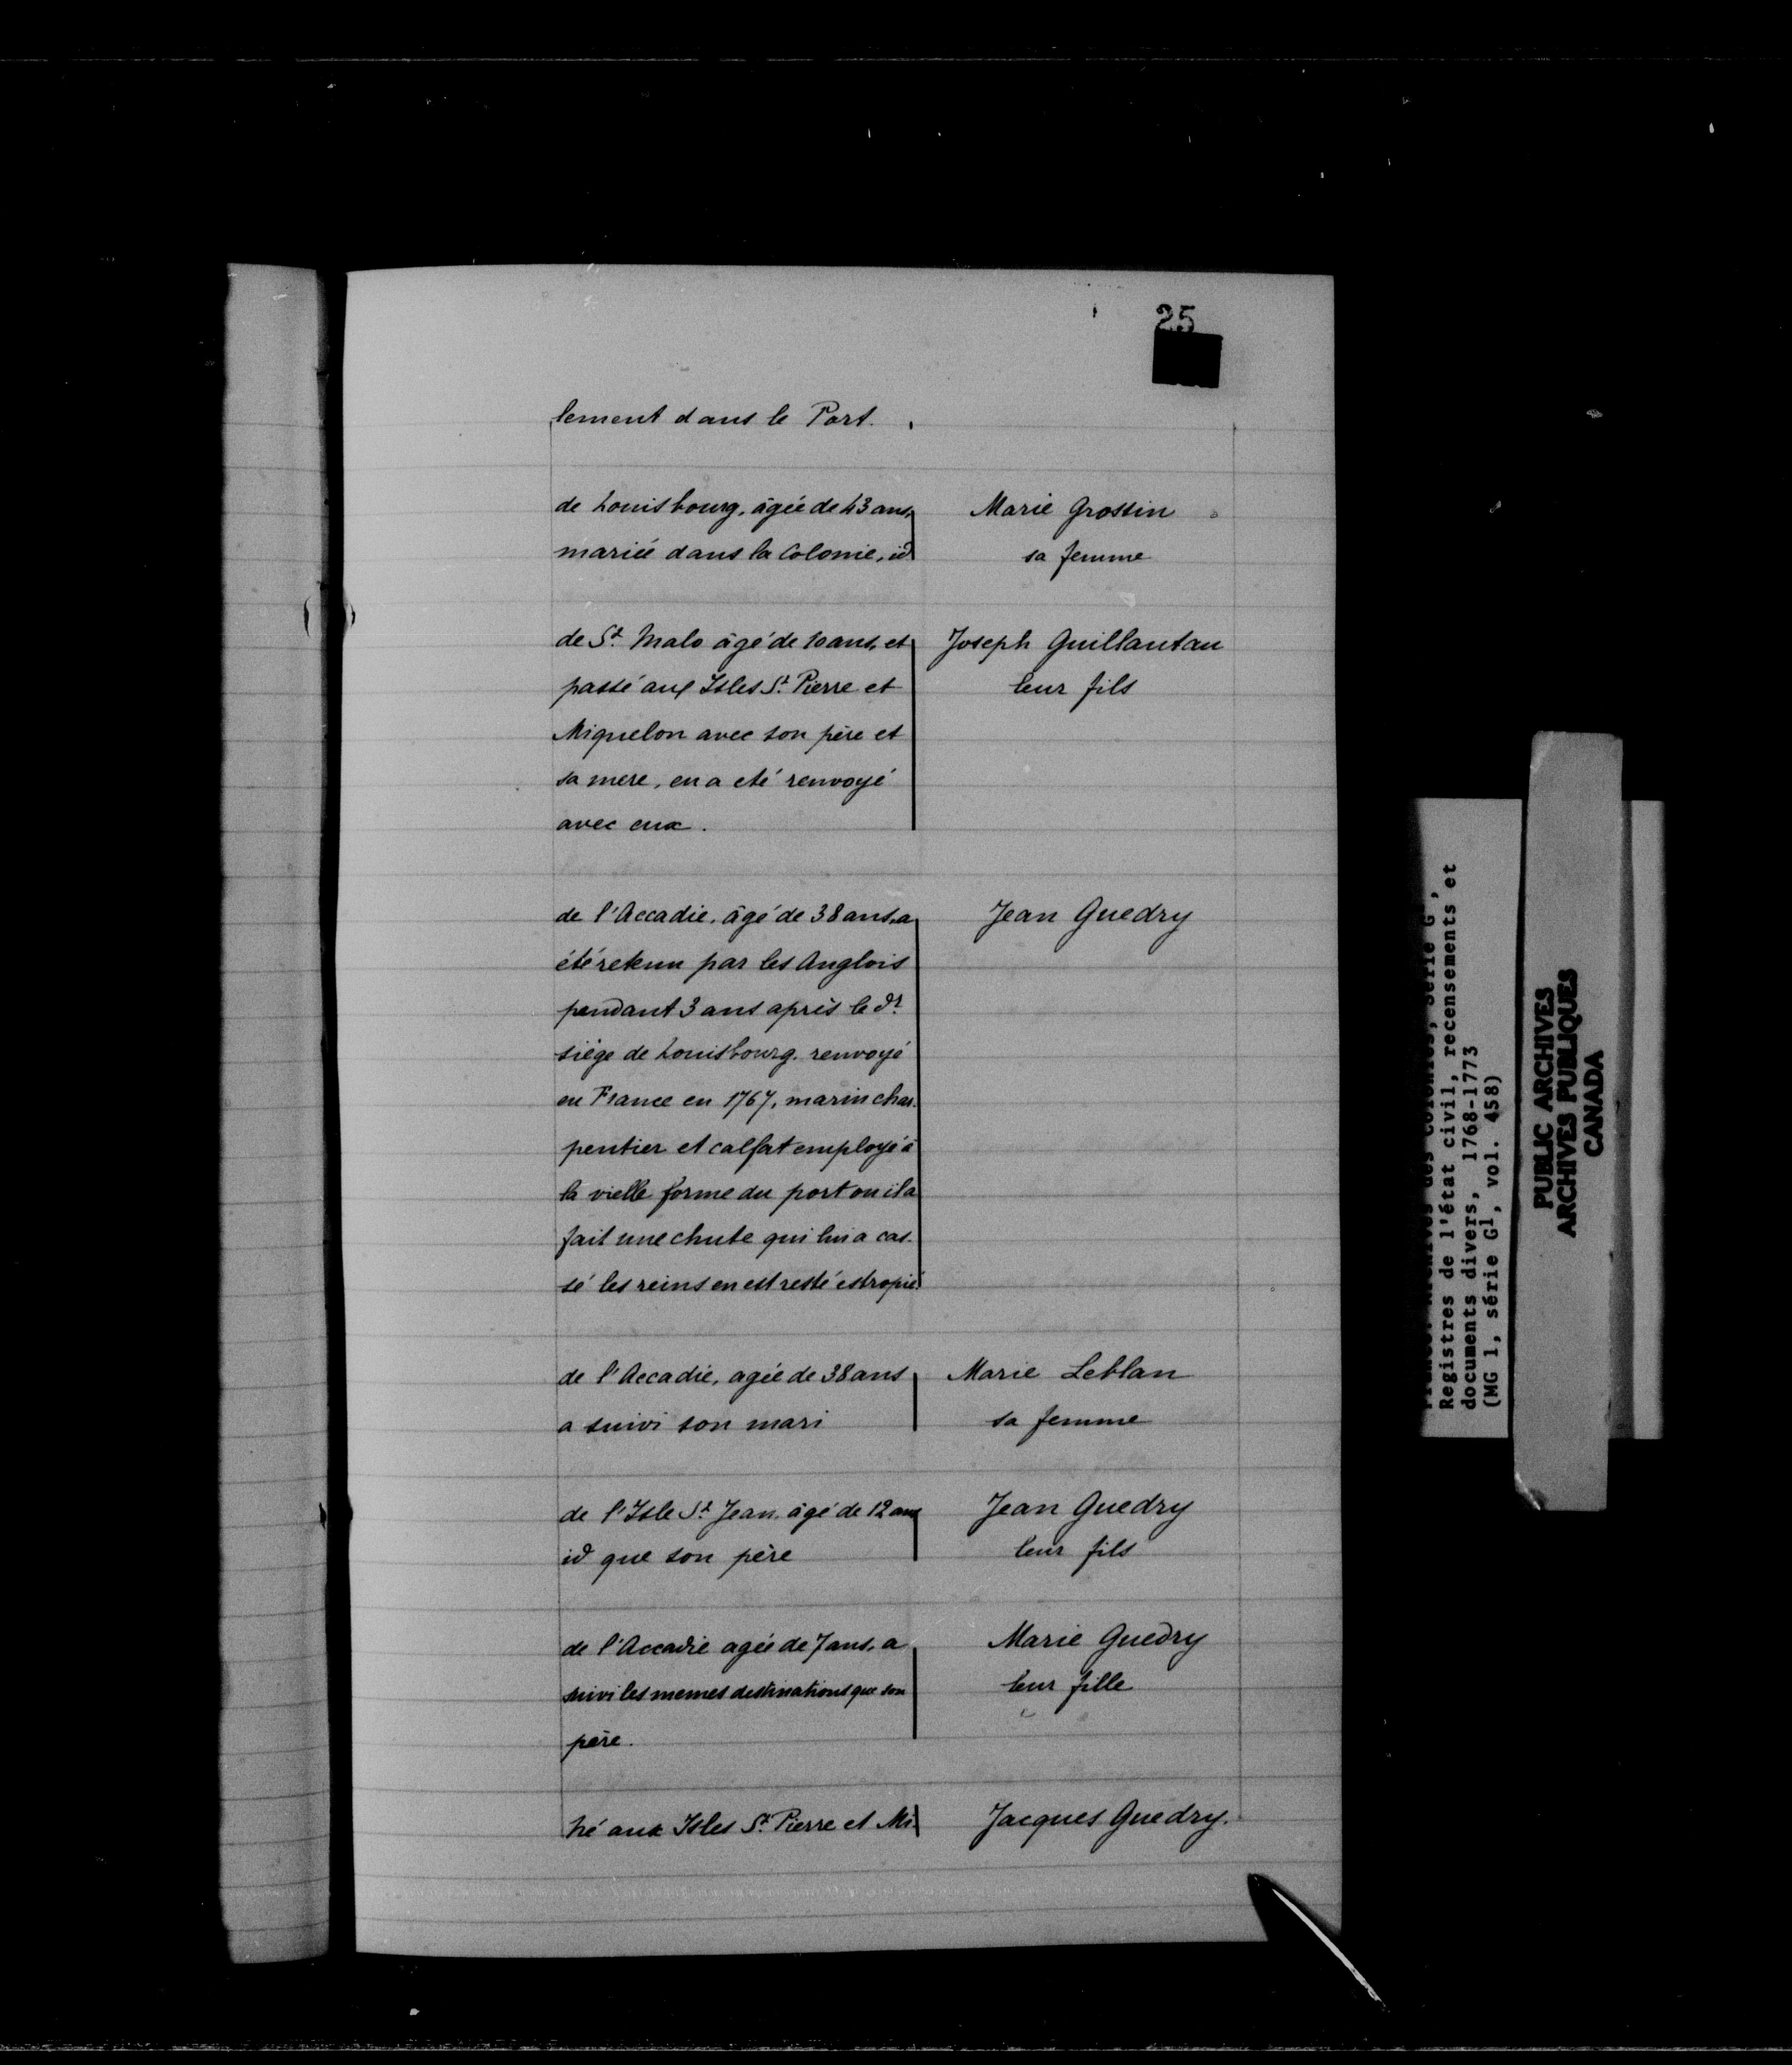 25
lement dans le Port.
de Louisbourg, âgée de 43 ans,
mariée dans la Colonie, id
Marie Grossin
sa femme
de St. Malo âgé de 10 ans, et
passé aux Isles St. Pierre et
Miquelon avec son père et
sa mere, en a eté renvoyé
avec eux.
Joseph Guillautau
leur fils
de l'Accadie, âgé de 38 ans, a
été retenu par les Anglois
pendant 3 ans après le dr.
siège de Louisbourg, renvoyé
en France en 1767, marin char-
pentier et calfat employé à
la vielle forme du port ou il a
fait une chute qui lui a cas-
sé les reins en est resté estropié.
Jean Guedry
de l'Accadie, agée de 38 ans
a suivi son mari
Marie Leblan
sa femme
de l'Isle St. Jean, âgé de 12 ans
id que son père
Jean Guedry
leur fils
de l'Accadie agée de 7 ans, a
suivi les memes destinations que son
père.
Marie Guedry
leur fille
Né aux Isles St. Pierre et Mi
Jacques Guedry.
Registres de l'état civil, recensements et
documents divers, 1768-1773
(MG 1, série G1, vol. 458)
PUBLIC ARCHIVES
ARCHIVES PUBLIQUES
CANADA